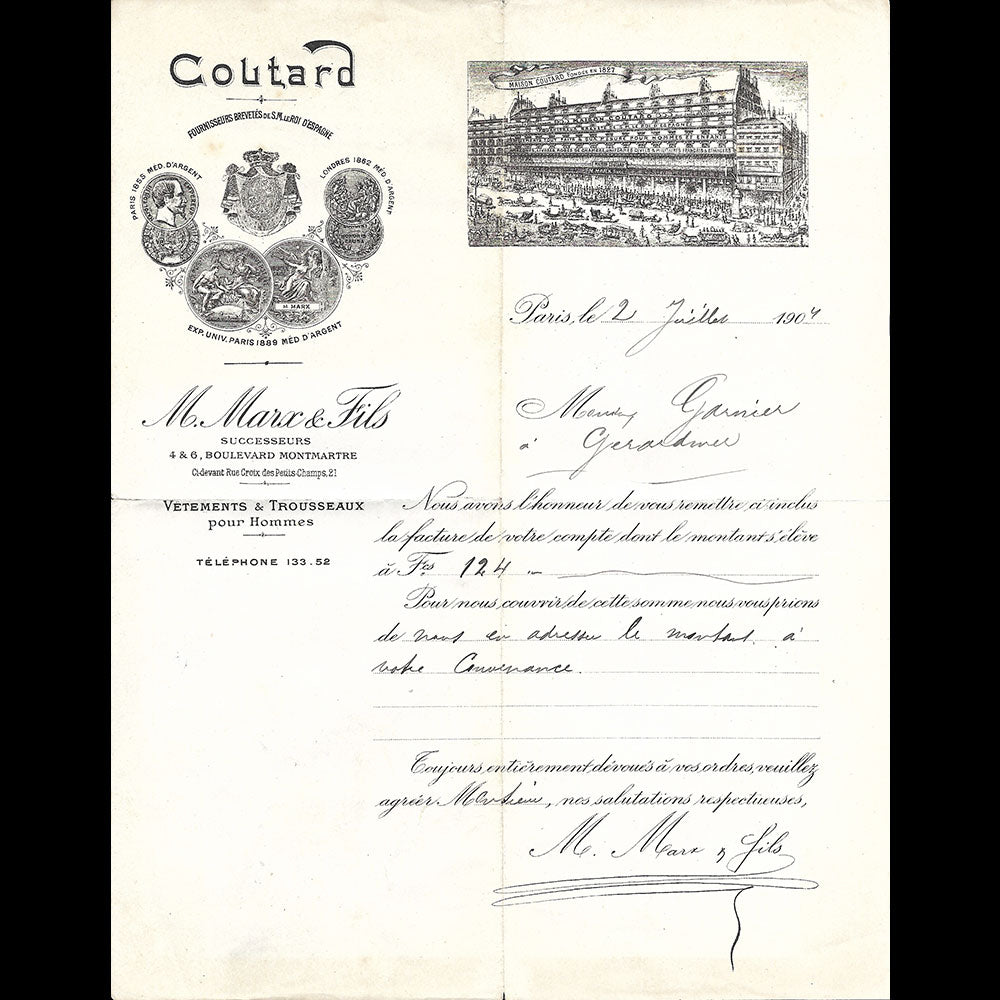 Coutard
FOURNISSEURS BREVETÉS DE S.M. LE ROI D'ESPAGNE
PARIS 1855 MÉD. D'ARGENT
LONDRES 1862 MÉD D'ARGENT
M MARX
EXP. UNIV. PARIS 1889 MÉD D'ARGENT
M. Marx & Fils
SUCCESSEURS
4 & 6, BOULEVARD MONTMARTRE
Ci-devant Rue Croix des Petits-Champs, 21
VÊTEMENTS & TROUSSEAUX
pour Hommes
TÉLÉPHONE 133.52
MAISON COUTARD FONDÉE EN 1827
MAISON COUTARD
POUR HOMMES ET ENFANTS
Paris, le 2 Juillet 1904
Garnier
à Gerardmer
Nous avons l'honneur de vous remettre ci inclus
la facture de votre compte dont le montant s'élève
à Fcs 124 "
Pour nous couvrir de cette somme nous vous prions
de nous en adresser le montant à
votre Convenance.
Toujours entièrement dévoués à vos ordres, veuillez
agréer Monsieur, nos salutations respectueuses,
M. Marx & fils